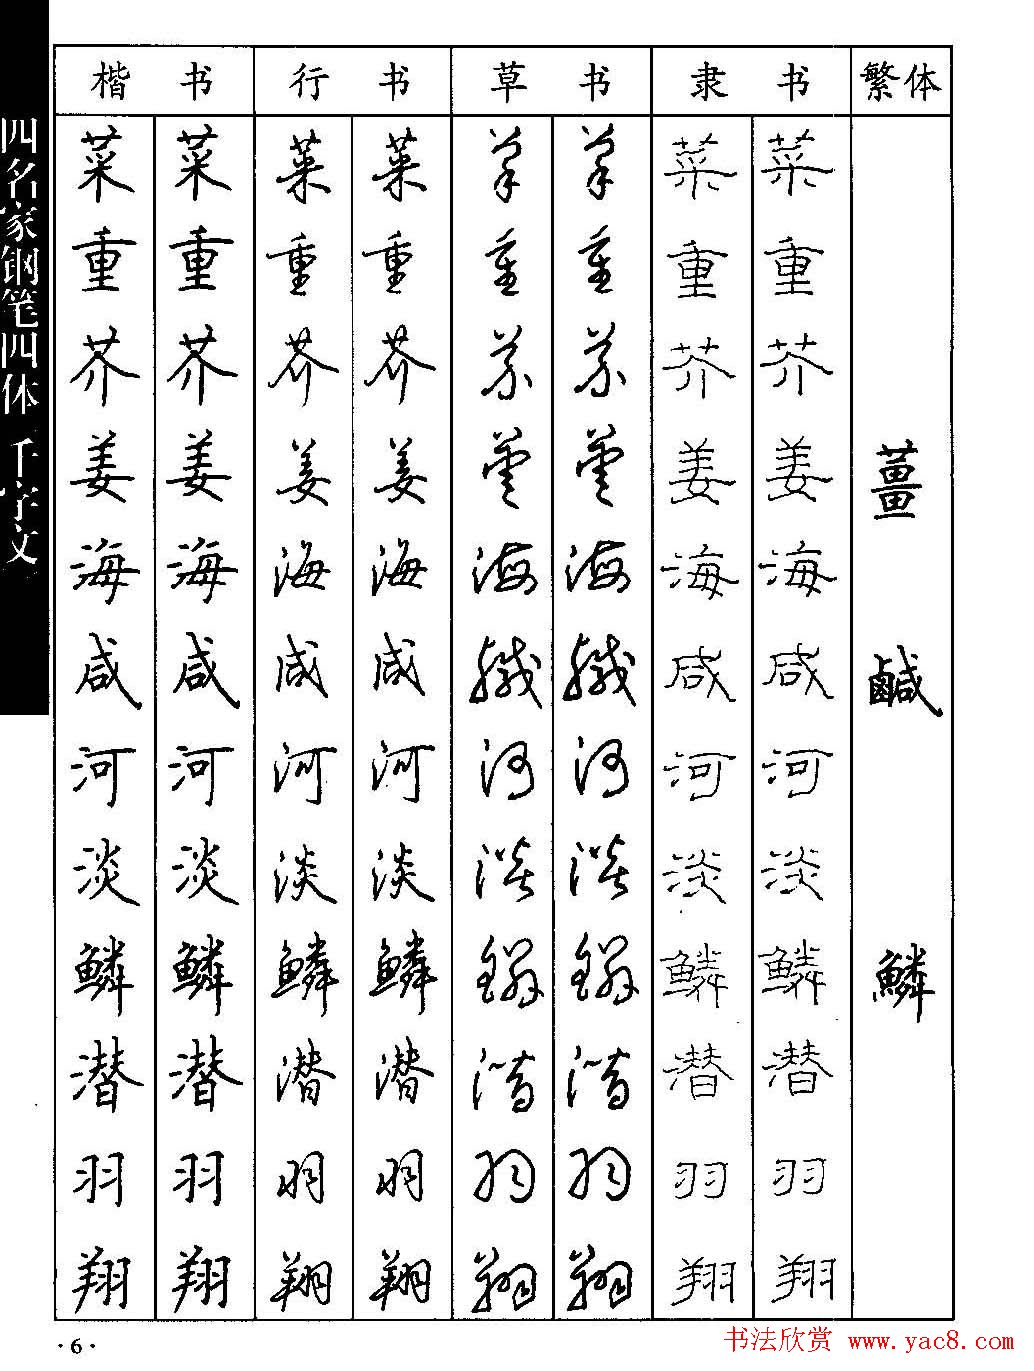 四名家钢笔四体 千字文
楷书 行书 草书 隶书 繁体
菜 菜 菜 菜 菜 菜 菜 菜
重 重 重 重 重 重 重 重
芥 芥 芥 芥 芥 芥 芥 芥
姜 姜 姜 姜 姜 姜 姜 姜 薑
海 海 海 海 海 海 海 海
咸 咸 咸 咸 鹹 鹹 咸 咸 鹹
河 河 河 河 河 河 河 河
淡 淡 淡 淡 淡 淡 淡 淡
鳞 鳞 鳞 鳞 鳞 鳞 鳞 鳞 鱗
潜 潜 潜 潜 潜 潜 潜 潜
羽 羽 羽 羽 羽 羽 羽 羽
翔 翔 翔 翔 翔 翔 翔 翔
·6·
书法欣赏 www.yac8.com